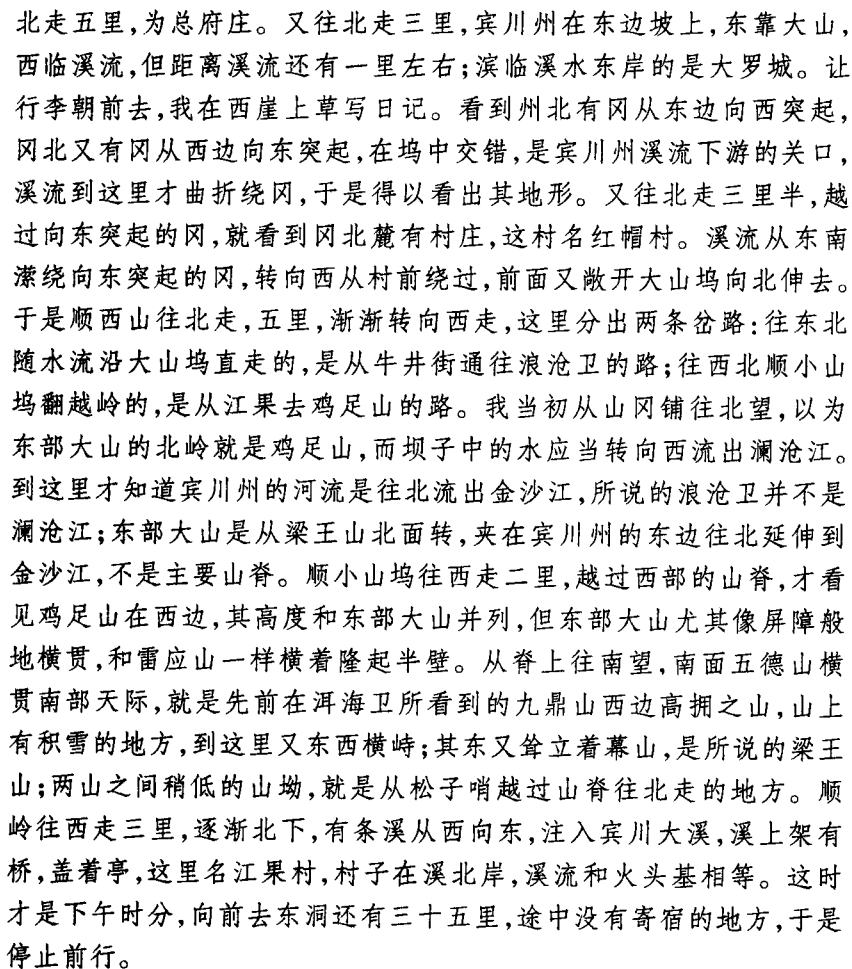 北走五里,为总府庄。又往北走三里,宾川州在东边坡上,东靠大山,
西临溪流,但距离溪流还有一里左右;滨临溪水东岸的是大罗城。让
行李朝前去,我在西崖上草写日记。看到州北有冈从东边向西突起,
冈北又有冈从西边向东突起,在坞中交错,是宾川州溪流下游的关口,
溪流到这里才曲折绕冈,于是得以看出其地形。又往北走三里半,越
过向东突起的冈,就看到冈北麓有村庄,这村名红帽村。溪流从东南
潆绕向东突起的冈,转向西从村前绕过,前面又敞开大山坞向北伸去。
于是顺西山往北走,五里,渐渐转向西走,这里分出两条岔路:往东北
随水流沿大山坞直走的,是从牛井街通往浪沧卫的路;往西北顺小山
坞翻越岭的,是从江果去鸡足山的路。我当初从山冈铺往北望,以为
东部大山的北岭就是鸡足山,而坝子中的水应当转向西流出澜沧江。
到这里才知道宾川州的河流是往北流出金沙江,所说的浪沧卫并不是
澜沧江;东部大山是从梁王山北面转,夹在宾川州的东边往北延伸到
金沙江,不是主要山脊。顺小山坞往西走二里,越过西部的山脊,才看
见鸡足山在西边,其高度和东部大山并列,但东部大山尤其像屏障般
地横贯,和雷应山一样横着隆起半壁。从脊上往南望,南面五德山横
贯南部天际,就是先前在洱海卫所看到的九鼎山西边高拥之山,山上
有积雪的地方,到这里又东西横峙;其东又耸立着幕山,是所说的梁王
山;两山之间稍低的山坳,就是从松子哨越过山脊往北走的地方。顺
岭往西走三里,逐渐北下,有条溪从西向东,注入宾川大溪,溪上架有
桥,盖着亭,这里名江果村,村子在溪北岸,溪流和火头基相等。这时
才是下午时分,向前去东洞还有三十五里,途中没有寄宿的地方,于是
停止前行。